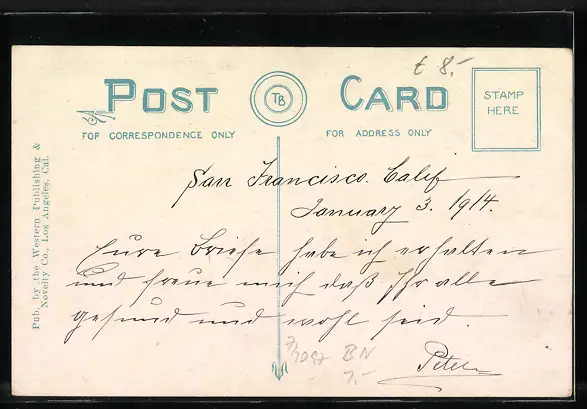 € 8.-
POST CARD
TB
STAMP
HERE
FOR CORRESPONDENCE ONLY
FOR ADDRESS ONLY
Pub. by the Western Publishing &
Novelty Co., Los Angeles, Cal.
San Francisco. Calif
January 3. 1914.
Eure Briefe habe ich erhalten
und freue mich daß Ihr alle
gesund und wohl seid.
Peter
BN